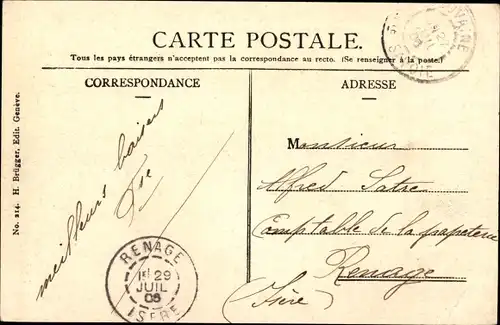 CARTE POSTALE.
Tous les pays étrangers n'acceptent pas la correspondance au recto. (Se renseigner à la poste.)
CORRESPONDANCE
ADRESSE
No. 214. H. Brügger, Edit. Genève.
meilleurs baisers
Monsieur
Alfred Satre
Comptable de la papeterie
Renage
(Isère)
RENAGE
29
JUIL
05
ISERE